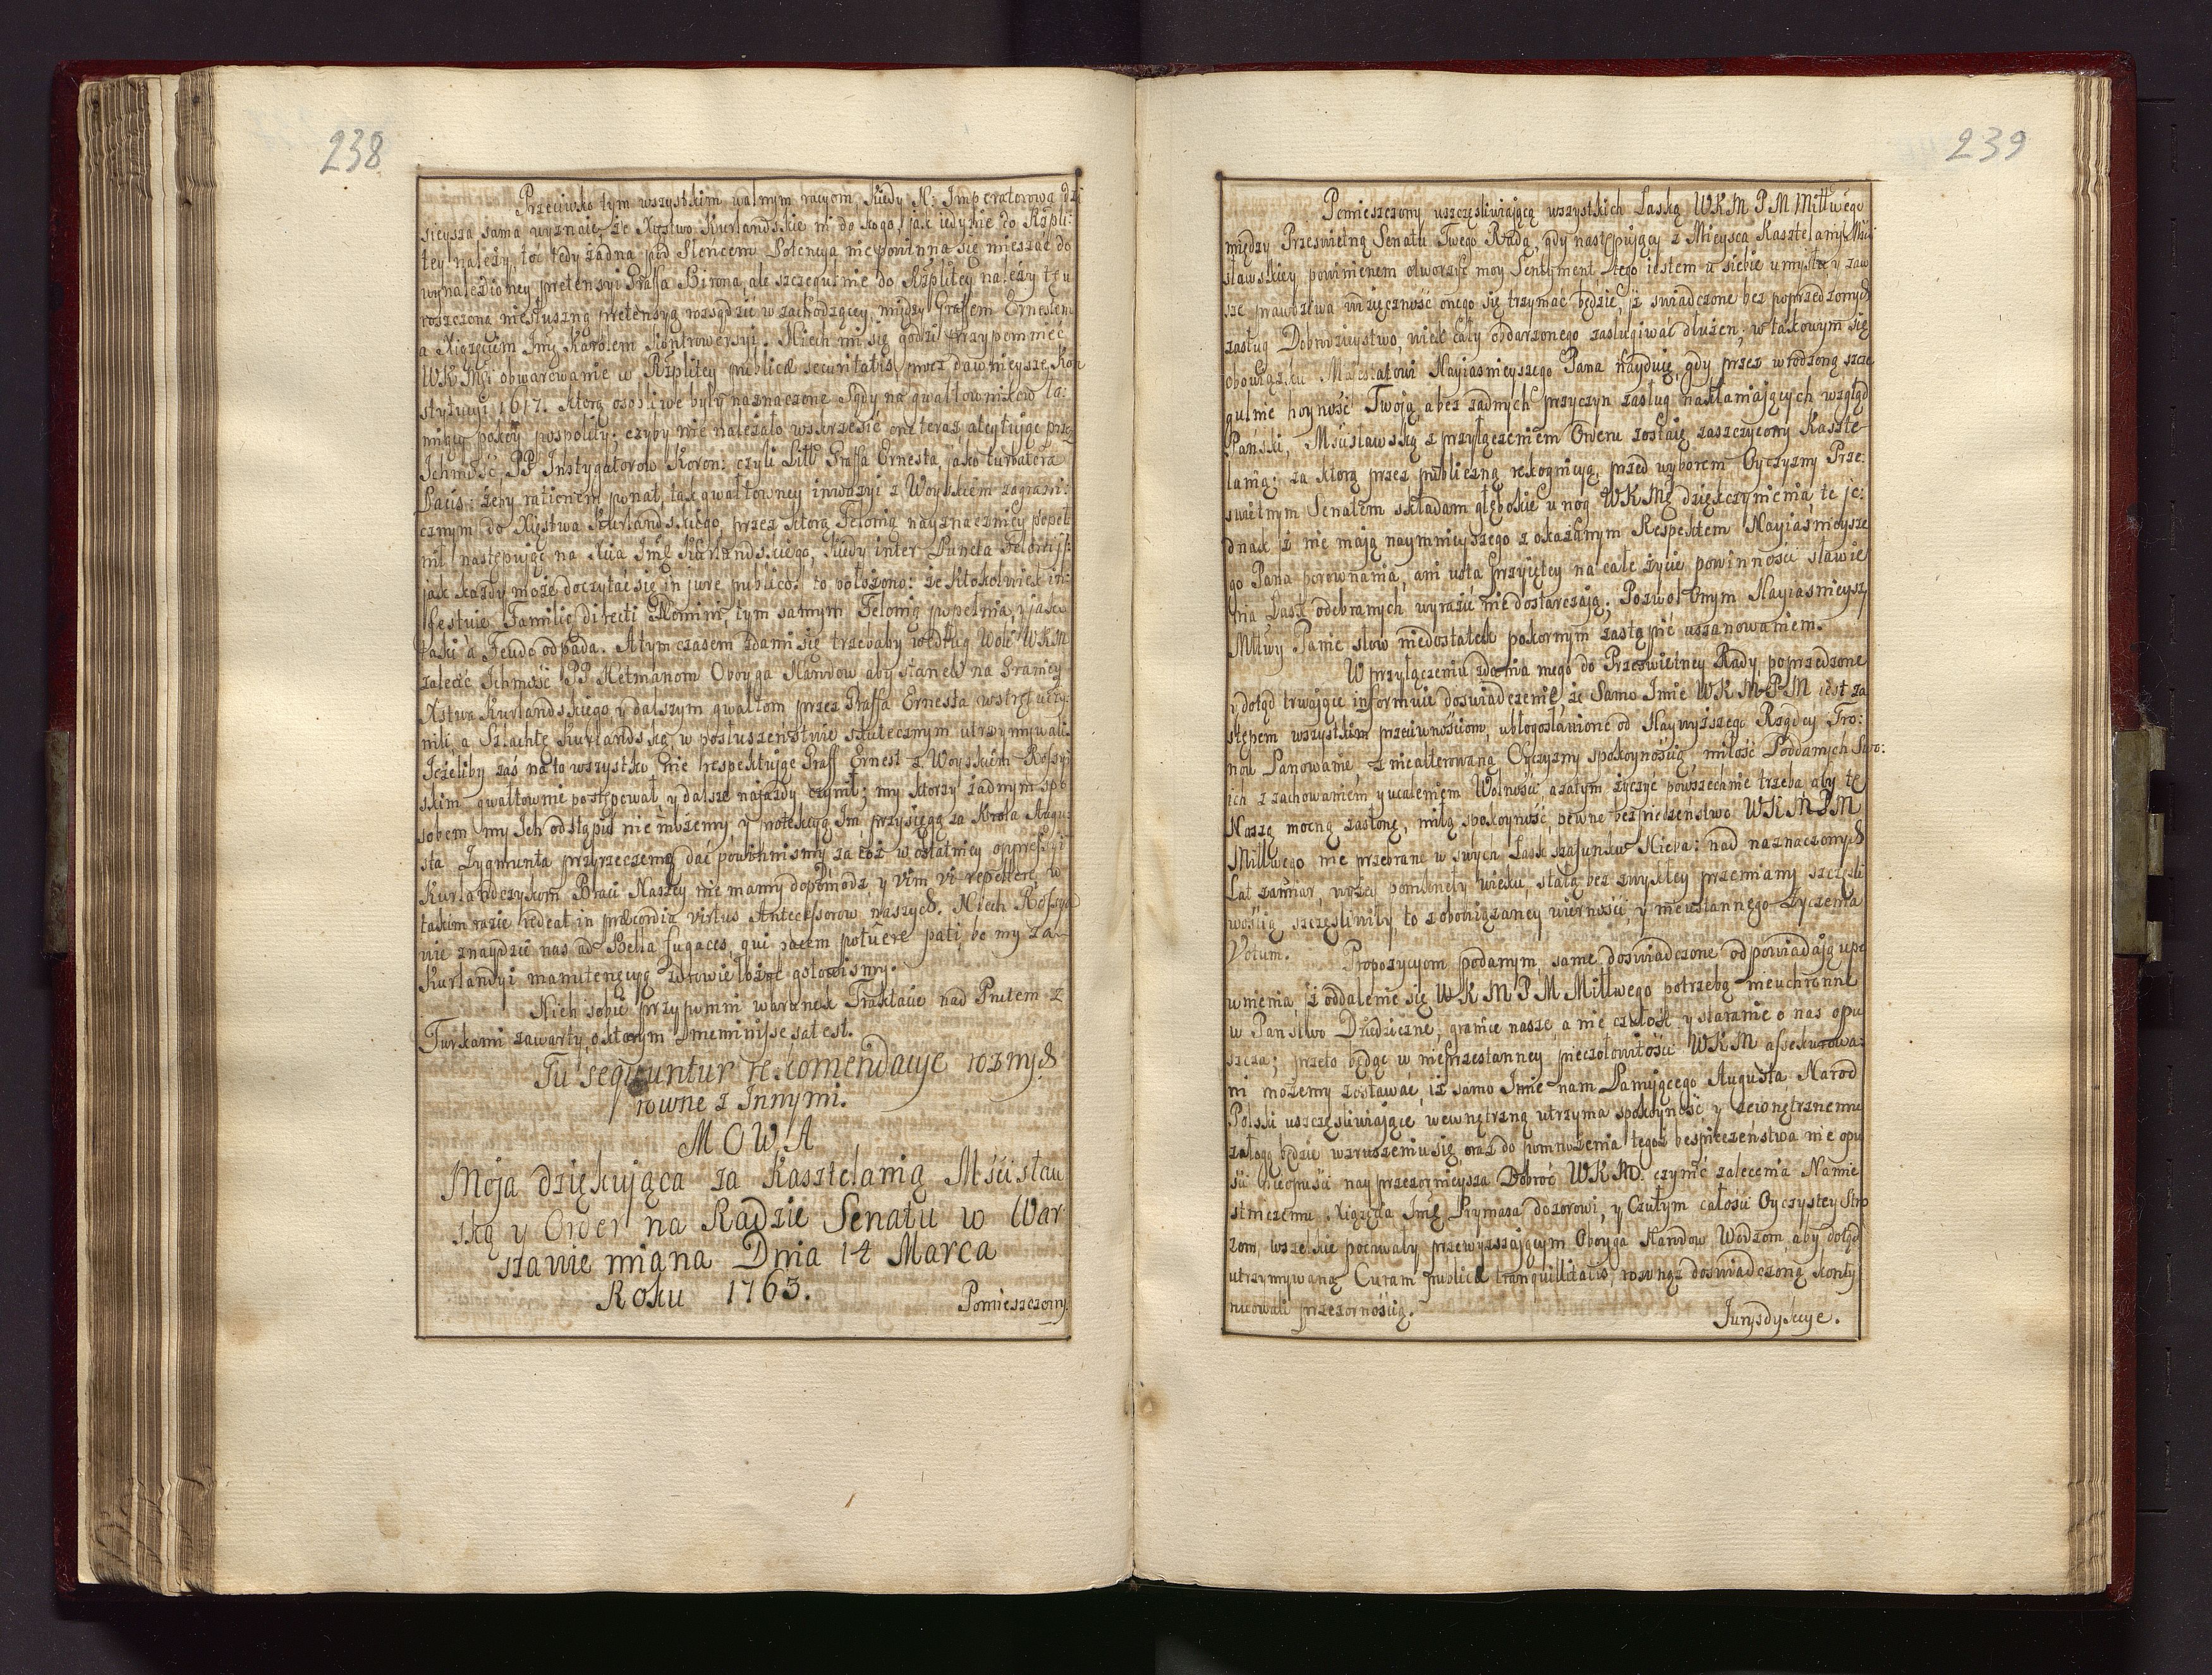 238
Przeciwko tym wszystkim walnym racyom, kiedy N: Imperatorowa dzi
sieysza sama wyznaie, że Xięstwo Kurlandskie ni do kogo, jak iedynie do Rzpli:
tey należy, toć tedy żadna pod Słońcem Potencya nie powinna się mieszać do
wynalezioney pretensyi Graffa Birona, ale szczegulnie do Rzplitey należy tę u
roszczoną niesłuszną pretensyą rozsądzić w zachodzącey między Graffem Ernestem
a Xiążęciem Jmę Karolem kontrowersyi. Niech mi się godzi przypomnieć
WKMci obwarowanie w Rzplitey publicæ securitatis, przez dawnieysze Kon
stytucyi 1617. ktorą osobliwe były naznaczone Sądy na gwałtownikow ła:
miący pokoy pospolity: czyby nie należało wskrzesić one teraz, atentując przez
Ichmość PP Instygatorow Koron: czyli Litt Graffa Ernesta, jako turbatora
Pacis: żeby rationem ponał, tak gwałtowney inwazyi z Woyskiem zagrani:
cznym do Xięstwa Kurlandskiego, przez ktorą Felonią nayznaczniey popeł
nił następując na Xcia Jmę Kurlandskiego, kiedy inter Puncta
jak każdy może doczytać się in jure publico: to położono: że ktokolwiek in:
festuie Familię directi Domini, tym samym Felonią popełnia, y jako
taki à Feudo odpada. A tym czasem zdami się trzebaby według Woli WKM
zalecić Ichmość PP Hetmanom Oboyga Narodow aby staneli na Granicy
Xstwa Kurlandskiego y dalszym gwałtom przez Graffa Ernesta wstręt uczy
nili, a Szlachtę Kurlandską w posłuszeństwie skutecznym utrzymywali.
Jeżeliby zaś na to wszystko nie respektując Graff Ernest z Woyskiem Rossyi
skim gwałtownie postępował, y dalsze najazdy czynił; my ktorzy żadnym spo
sobem my Ich odstąpić nie możemy, y protekcyą Im przysięgą za Krola Augu:
sta Zygmunta przyrzeczemą dać powinnismy, za coż w ostatniey oppressyi
Kurlandczykom Braci Naszey nie mamy dopomodz y vim vi repellere, w
takim razie redeat in præcordia virtus Antecessorow naszych. Niech Rossya
nie znaydzie nas ad Bella fugaces, qui pacem potuere pati, bo my za
Kurlandyi manutenęcyą zdrowie łożyć gotowismy.
Niech sobie przypomni warunek Traktacie nad Prutem z
Turkami zawarty, o ktorym Dmeminisse sat est.
Tu sequuntur rekomendacye roznych
rowne z Innymi.
MOWA
Moja dziękująca za Kasztelanią Mścisław
ską y Order na Radzie Senatu w War
szawie miana Dnia 14 Marca
Roku 1763.
Pomieszczony.
239
Pomieszczony uszczęsliwiającą wszystkich Łaską WKM PM Miłłwego
między Przeswietną Senatu Twego Radą, gdy następujący z Mieysca Kasztelanyi Mści
sławskiey powinienem otworzyć moy Sentyment, tego iestem u siebie umysłu, y zaw
sze prawdziwa wdzięczność onego się trzymać będzie, iż swiadczone bez poprzedzonych
zasług Dobrodzieystwo, wiek cały obdarzonego zasługiwać dłużen; w takowym się
obowiązku Maiestatowi Nayiasnieyszego Pana nayduię, gdy przez wrodzoną szcze
gulnie hoyność Twoją a bez żadnych przyczyn zasług nakłaniających wzgląd
Pański, Mscisławską z przyłączeniem Orderu zostaię zaszczycony Kaszte
lanią: za ktorą przez publiczną rekognicyą, przed wyborem Oyczyzny Prze:
swietnym Senatem składam głębokie u nog WKMę dziękczynienia, te je:
dnak iż nie mają naymnieyszego z okazanym Respektem Nayiasnieysze
go Pana porownania, ani usta przyiętey na całe życie powinności sławie
nia Łask odebranych wyrazić nie dostarczają; Pozwol Onym Nayiasnieyszy
Miłłwy Panie słow niedostatek pokornym zastąpić uszanowaniem.
W przyłączeniu zdania mego do Przeswietney Rady, poprzedzone
y dotąd trwające informuie doswiadczenie, że Samo Imie WKM PM iest za
stępem wszystkim przeciwnościom, ubłogosławione od Naywyższego Rządcy Tro:
now Panowanie, z niealterowaną Oyczyzny spokoynością, miłość Poddanych Swo:
ich z zachowaniem y ucaleniem Wolności, a zatym życzyć powszechnie trzeba, aby tę
Naszę mocną zasłonę, miłą spokoyność, pewne bezpieczeństwo WKM PM
Miłłwego nie przebrane w swych Łask szafunku Nieba: nad naznaczonych
Lat zamiar, wyżey pomknęły wieku, stałą bez zwykłey przemiany szczęśli
wością szczęśliwiły, to z obowiązaney wierności y nieustannego życzenia
Votum. Propozycyom podanym, same doswiadczone odpowiadają upe
wnienia, iż oddalenie się WKM PM Miłłwego potrzebą nieuchronne
w Państwo Dziedziczne, granice nasze, a nie czułość y staranie o nas opu
szcza; przeto będąc w nieprzestanney pieczołowitości WKM assekurowa:
ni możemy zostawać, iż samo Imie nam Panującego Augusta Narod
Polski uszczęsliwiające wewnętrzną utrzyma spokoyność, y zewnętrznemu
załogą będzie wzruszeniu się, oraz do pomnożenia tegoż bespieczeństwa nie opu
ści nay przezornieysza Dobroć WKM. czynić zalecenia Namie
stniczemu Xiążęcia Jmę Prymasa dozorowi, y Czułym całości Oyczystey Stro
zom, wszelkie pochwały przewyższającym Oboyga Narodow Wodzom, aby dotąd
utrzymywaną Curam publicæ tranquillitatis, rowną z doświadczoną konty
nuowali przezornością.
Jurysdykcye.